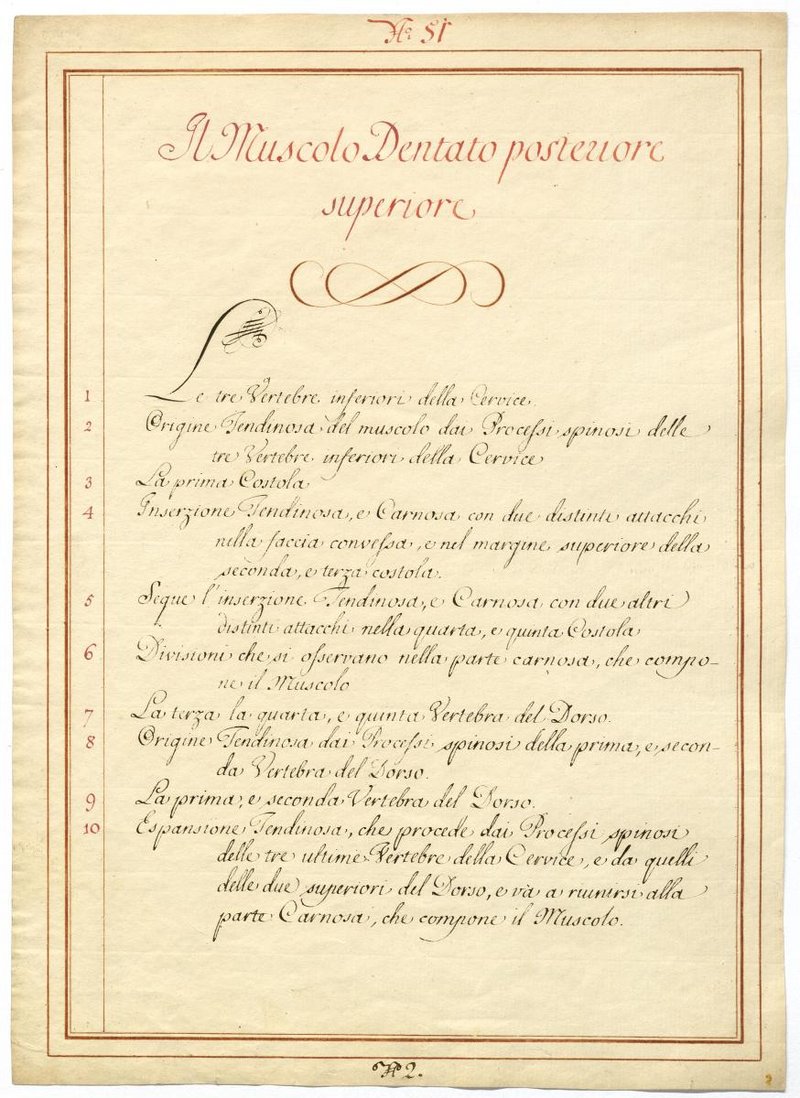 N.º 51
Il Muscolo Dentato posteriore
superiore
1 Le tre Vertebre inferiori della Cervice.
2 Origine Tendinosa del muscolo dai Processi spinosi delle
tre Vertebre inferiori della Cervice
3 La prima Costola
4 Inserzione Tendinosa, e Carnosa con due distinti attacchi
nella faccia convessa, e nel margine superiore della
seconda, e terza costola.
5 Segue l'inserzione Tendinosa, e Carnosa con due altri
distinti attacchi nella quarta, e quinta Costola
6 Divisioni che si osservano nella parte carnosa, che compo-
ne il Muscolo
7 La terza la quarta, e quinta Vertebra del Dorso.
8 Origine Tendinosa dai Processi spinosi della prima, e, secon-
da Vertebra del Dorso.
9 La prima, e seconda Vertebra del Dorso.
10 Espansione Tendinosa, che procede dai Processi spinosi
delle tre ultime Vertebre della Cervice, e da quelli
delle due superiori del Dorso, e và a riunirsi alla
parte Carnosa, che compone il Muscolo.
2.